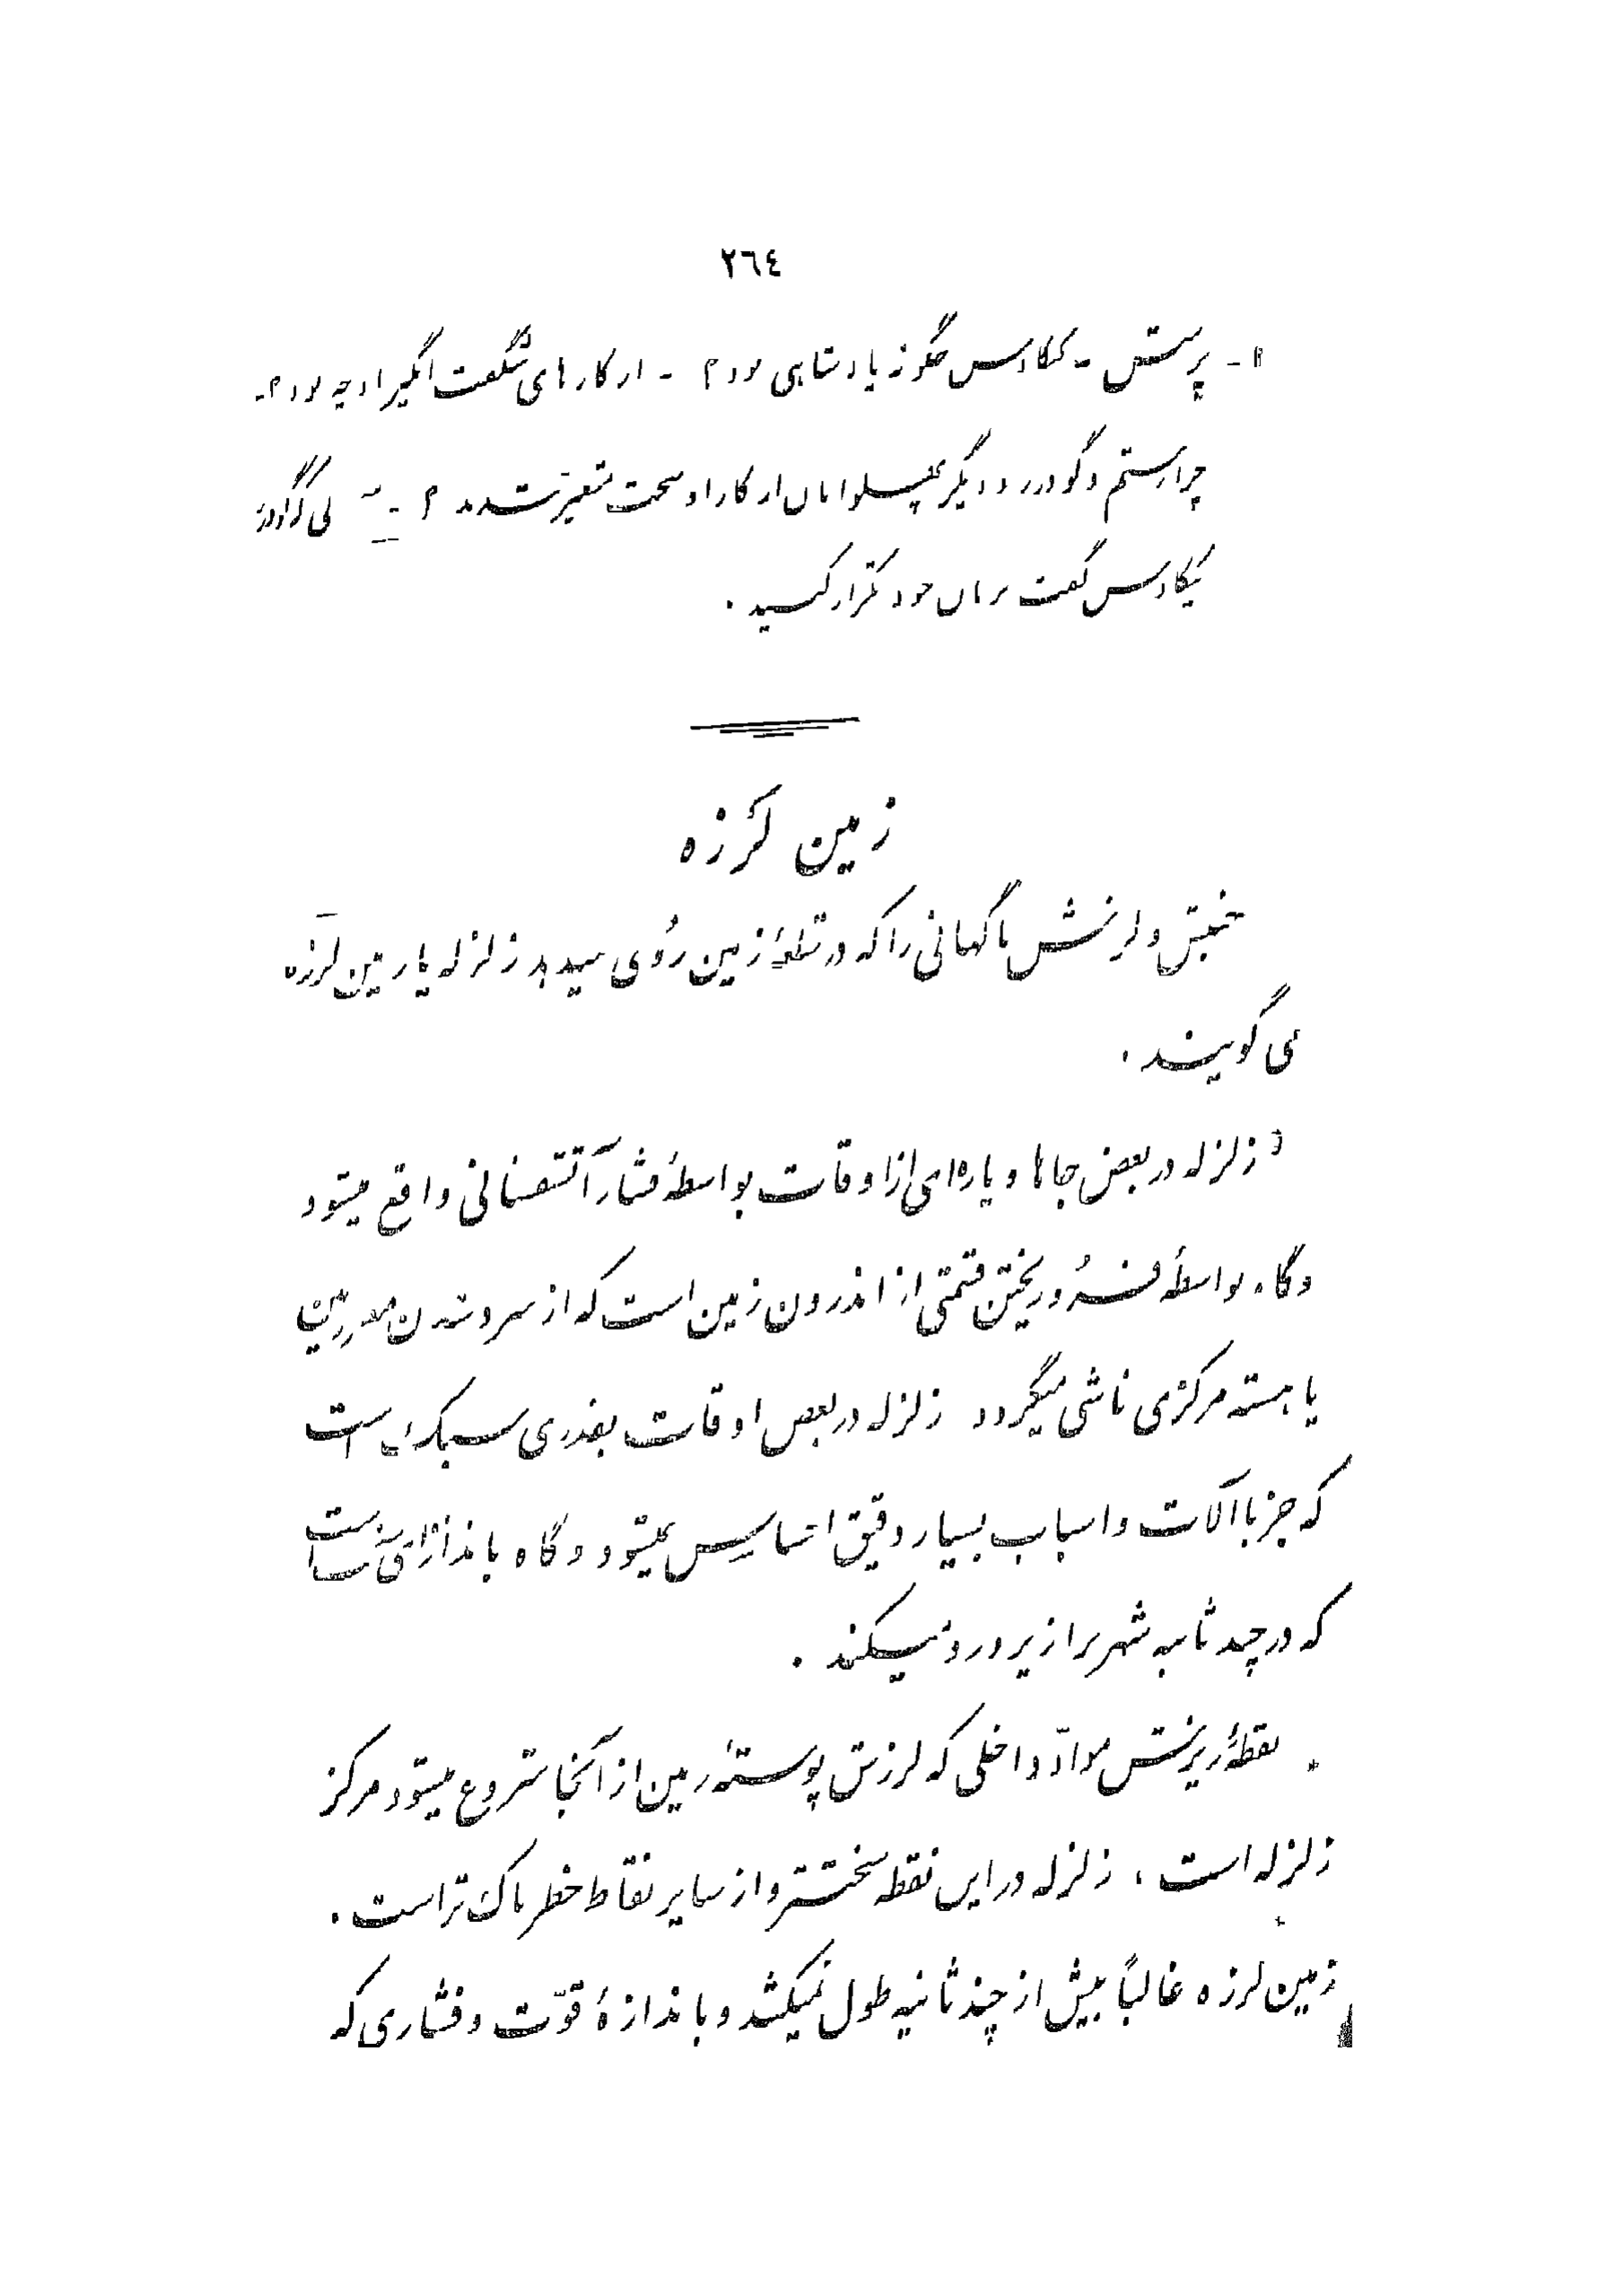 ٢٦٤
پرسش - کیکاوس چگونه پادشاهی بود ؟ - از کارهای شگفت انگیز او چه بود ؟-
چرا رستم و گودرز و دیگر پهلوانان از کار او سخت متغیّر شدند ؟ - گودرز
کیکاوس گفت بزبان خود تکرار کنید .
زمین لرزه
جنبش و لرزش ناگهانی را که در قطعهٔ زمین رُوی میدهد زلزله یا زمین لرزه
می گویند .
زلزله در بعض جاها و پاره‌ای از اوقات بواسطهٔ فشار آتشفشانی واقع میشود
و گاه بواسطهٔ فرُو ریختن قسمتی از اندرون زمین است که از سرد شدن
یا هسته مرکزی ناشی میگردد زلزله در بعض اوقات بقدری سبک است
که جز با آلات و اسباب بسیار دقیق احساس نمیشود و گاه باندازه‌ای
که در چند ثانیه شهر را زیر و رو میکند .
نقطهٔ ریزش موادّ داخلی که لرزش پوستهٔ زمین از آنجا شروع میشود مرکز
زلزله است ، زلزله در این نقطه سختتر و از سایر نقاط خطرناک تر است .
زمین لرزه غالباً بیش از چند ثانیه طول نمیکشد و باندازهٔ قوّت و فشاری که